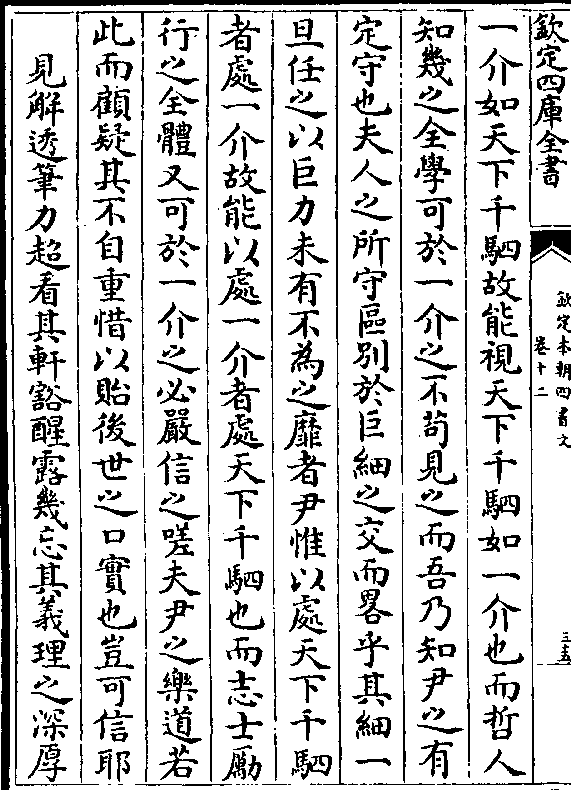 欽定四庫全書
欽定本朝四書文
卷十二
三五
一介如天下千駟故能視天下千駟如一介也而哲人
知幾之全學可於一介之不苟見之而吾乃知尹之有
定守也夫人之所守區別於巨細之交而畧乎其細一
旦任之以巨力未有不為之靡者尹惟以處天下千駟
者處一介故能以處一介者處天下千駟也而志士勵
行之全體又可於一介之必嚴信之嗟夫尹之樂道若
此而顧疑其不自重惜以貽後世之口實也豈可信耶
見解透筆力超看其軒豁醒露幾忘其義理之深厚